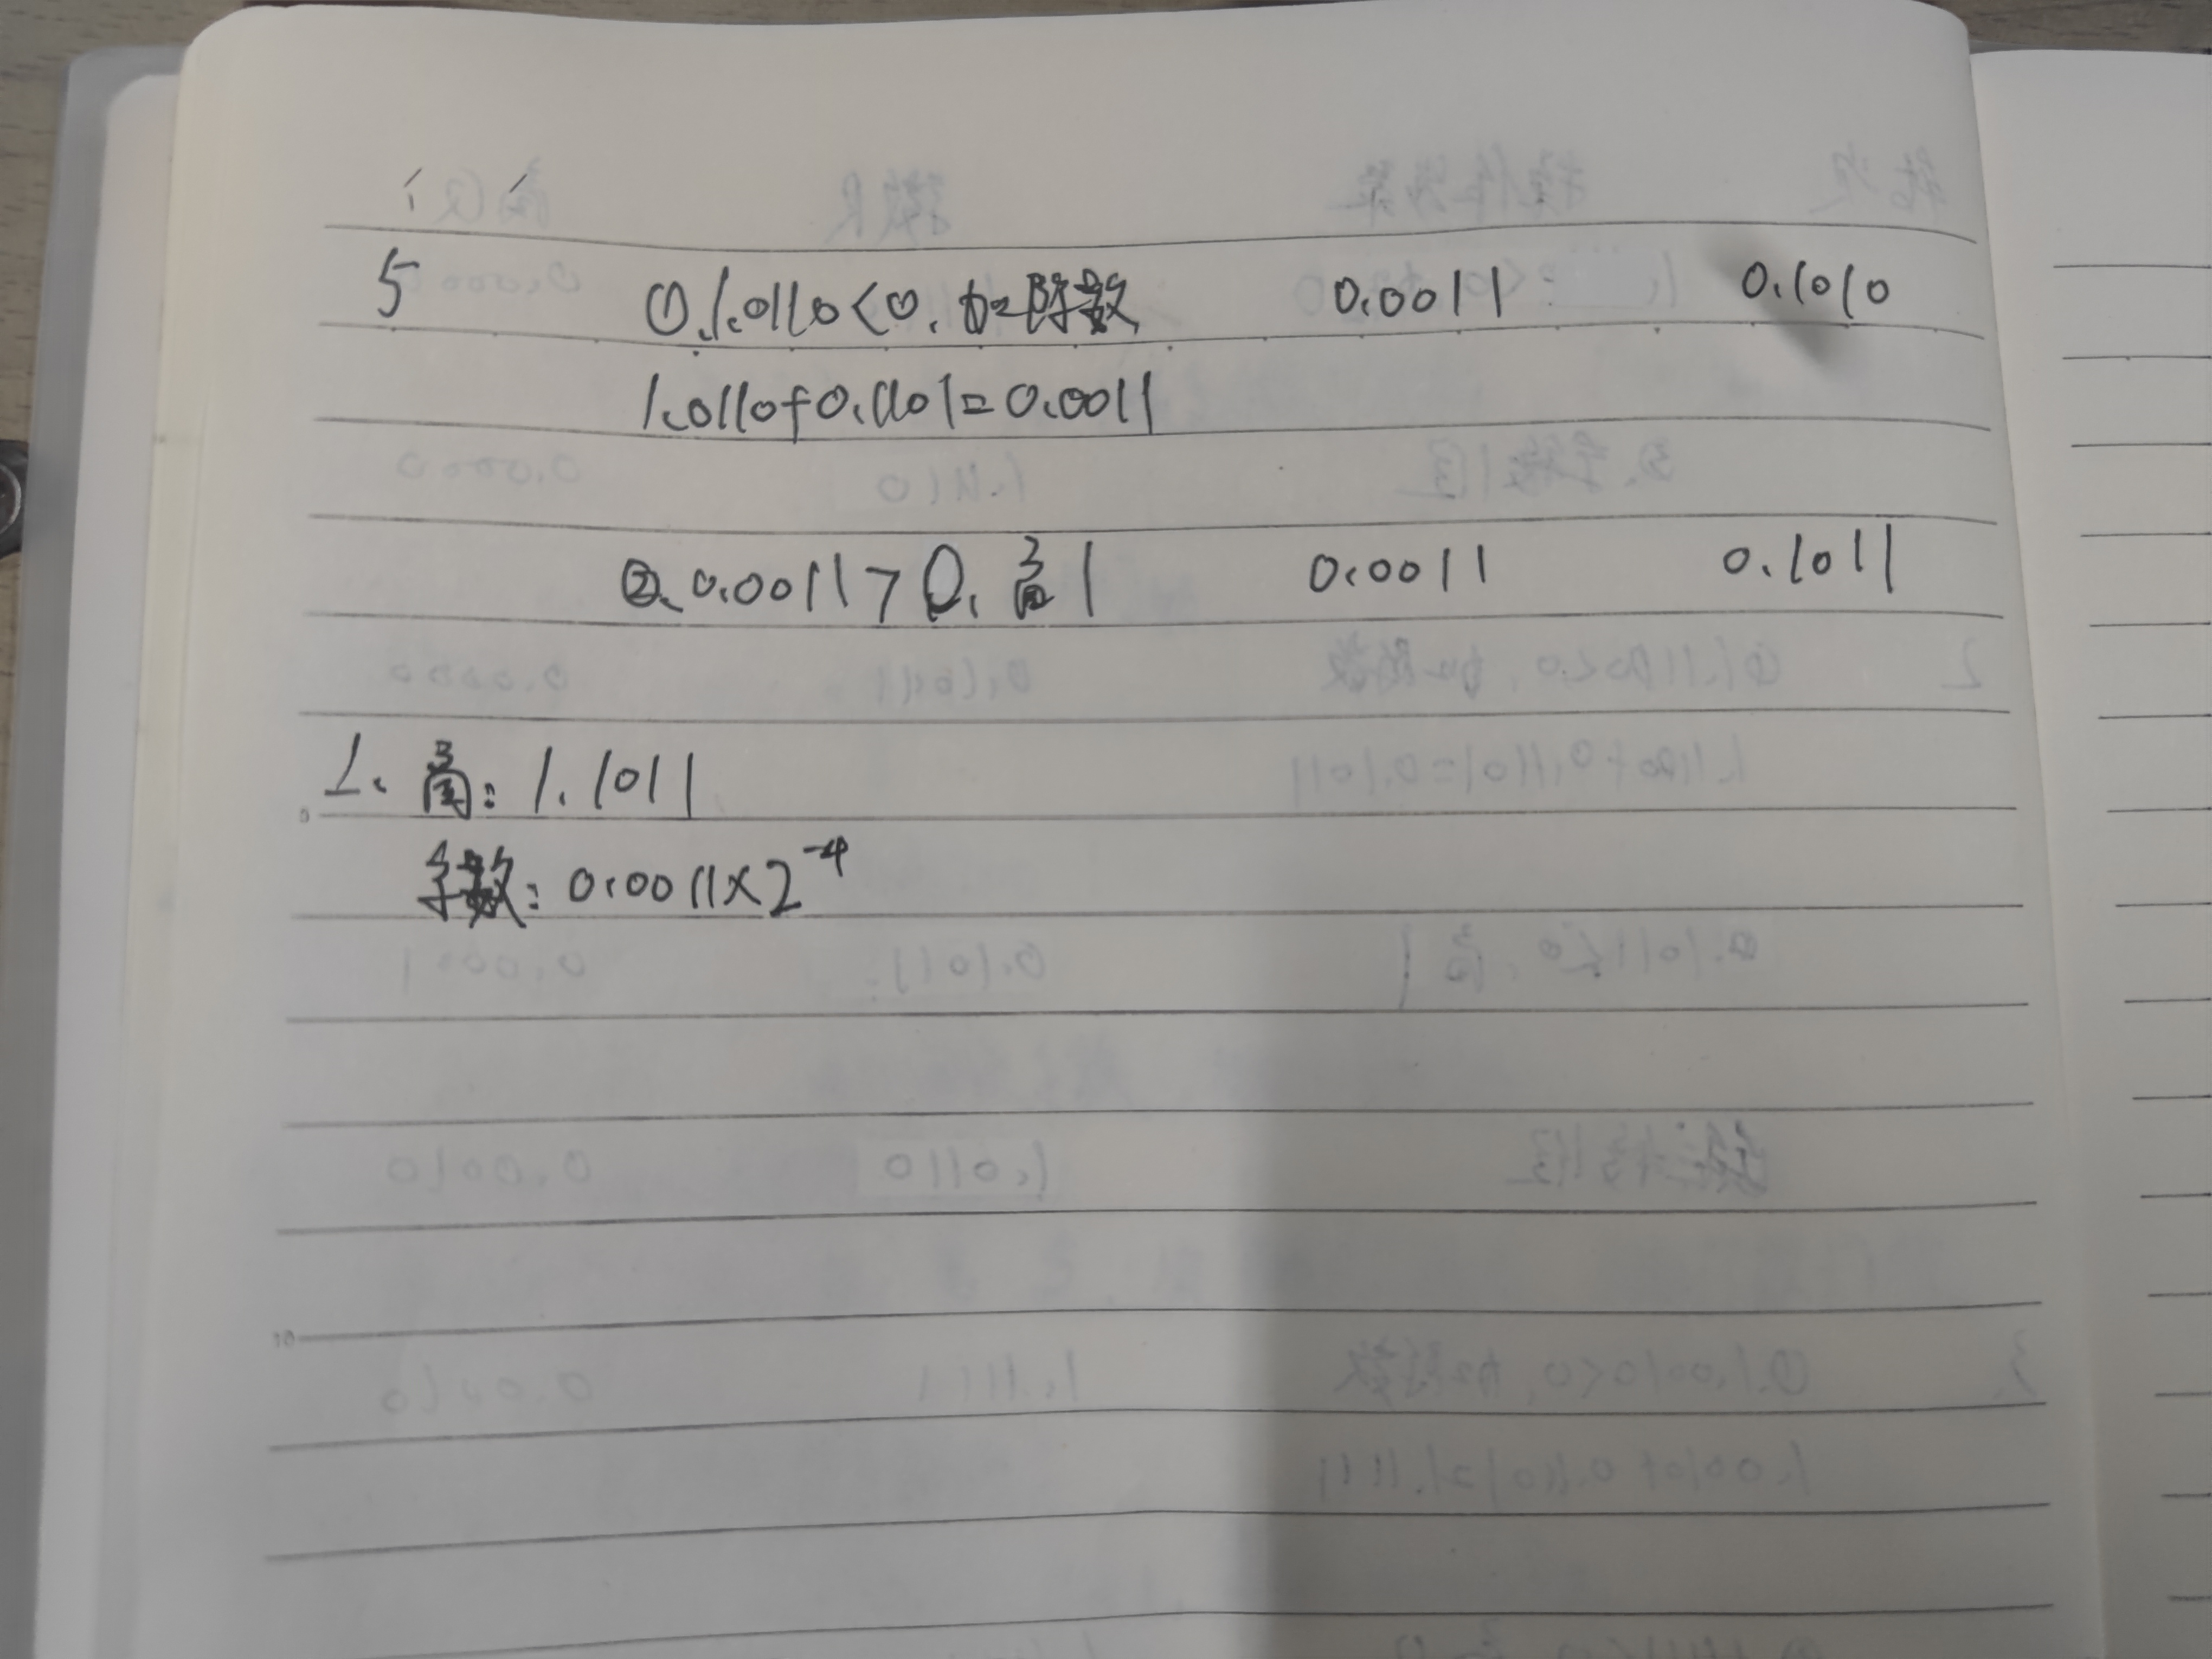 5 ①.1.0110<0.加除数 0.0011 0.1010
1.0110+0.1101=0.0011
②.0.0011>0.商1 0.0011 0.1011
⊥.商:1.1011
余数:0.0011×2⁻⁴
10